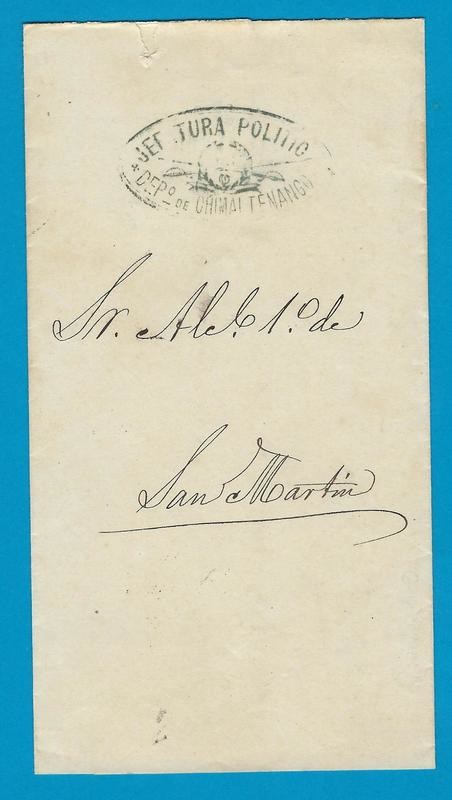 JEF TURA POLITIC
DEPº DE CHIMALTENANGO
Sr. Alc.e 1.º de
San Martin